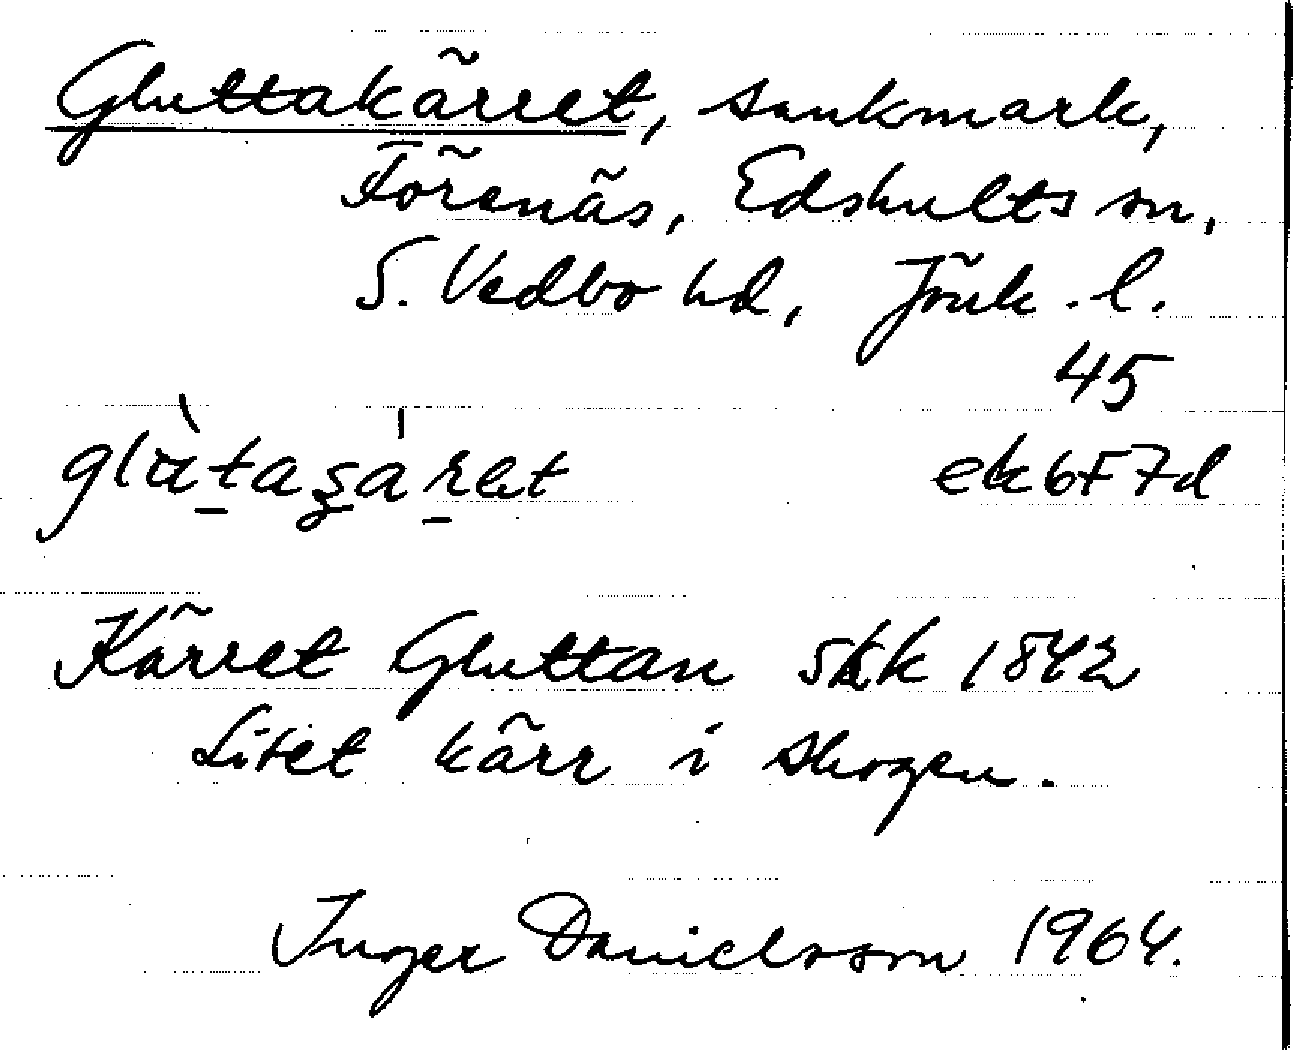 Gluttakärret, sankmark,
Förenäs, Edshults sn,
S. Vedbo hd, Jönk. l.
45
ek 6F7d
Kärret Gluttan skk 1842
Litet kärr i skogen.
Inger Danielsson 1964.